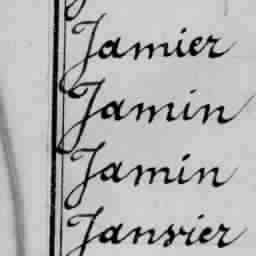 Jamier
Jamin
Jamin
Janvier